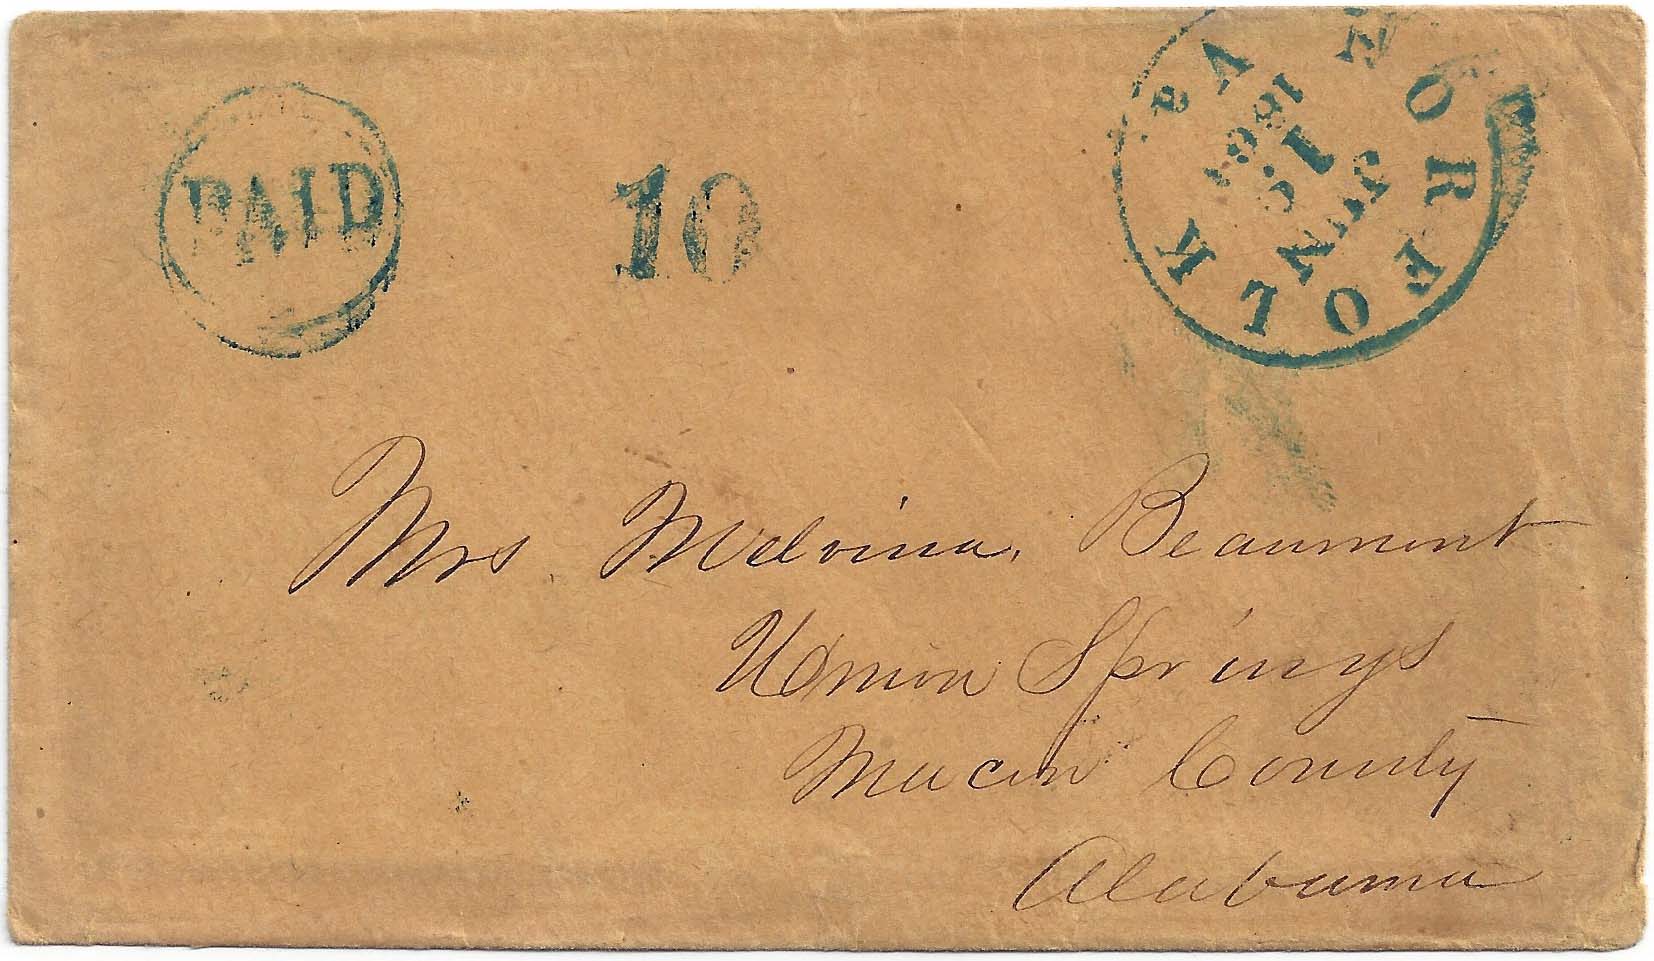 PAID
10
NORFOLK Va
JUN
15
1861
Mrs Melvina, Beaumont
Union Springs
Macon County
Alabama